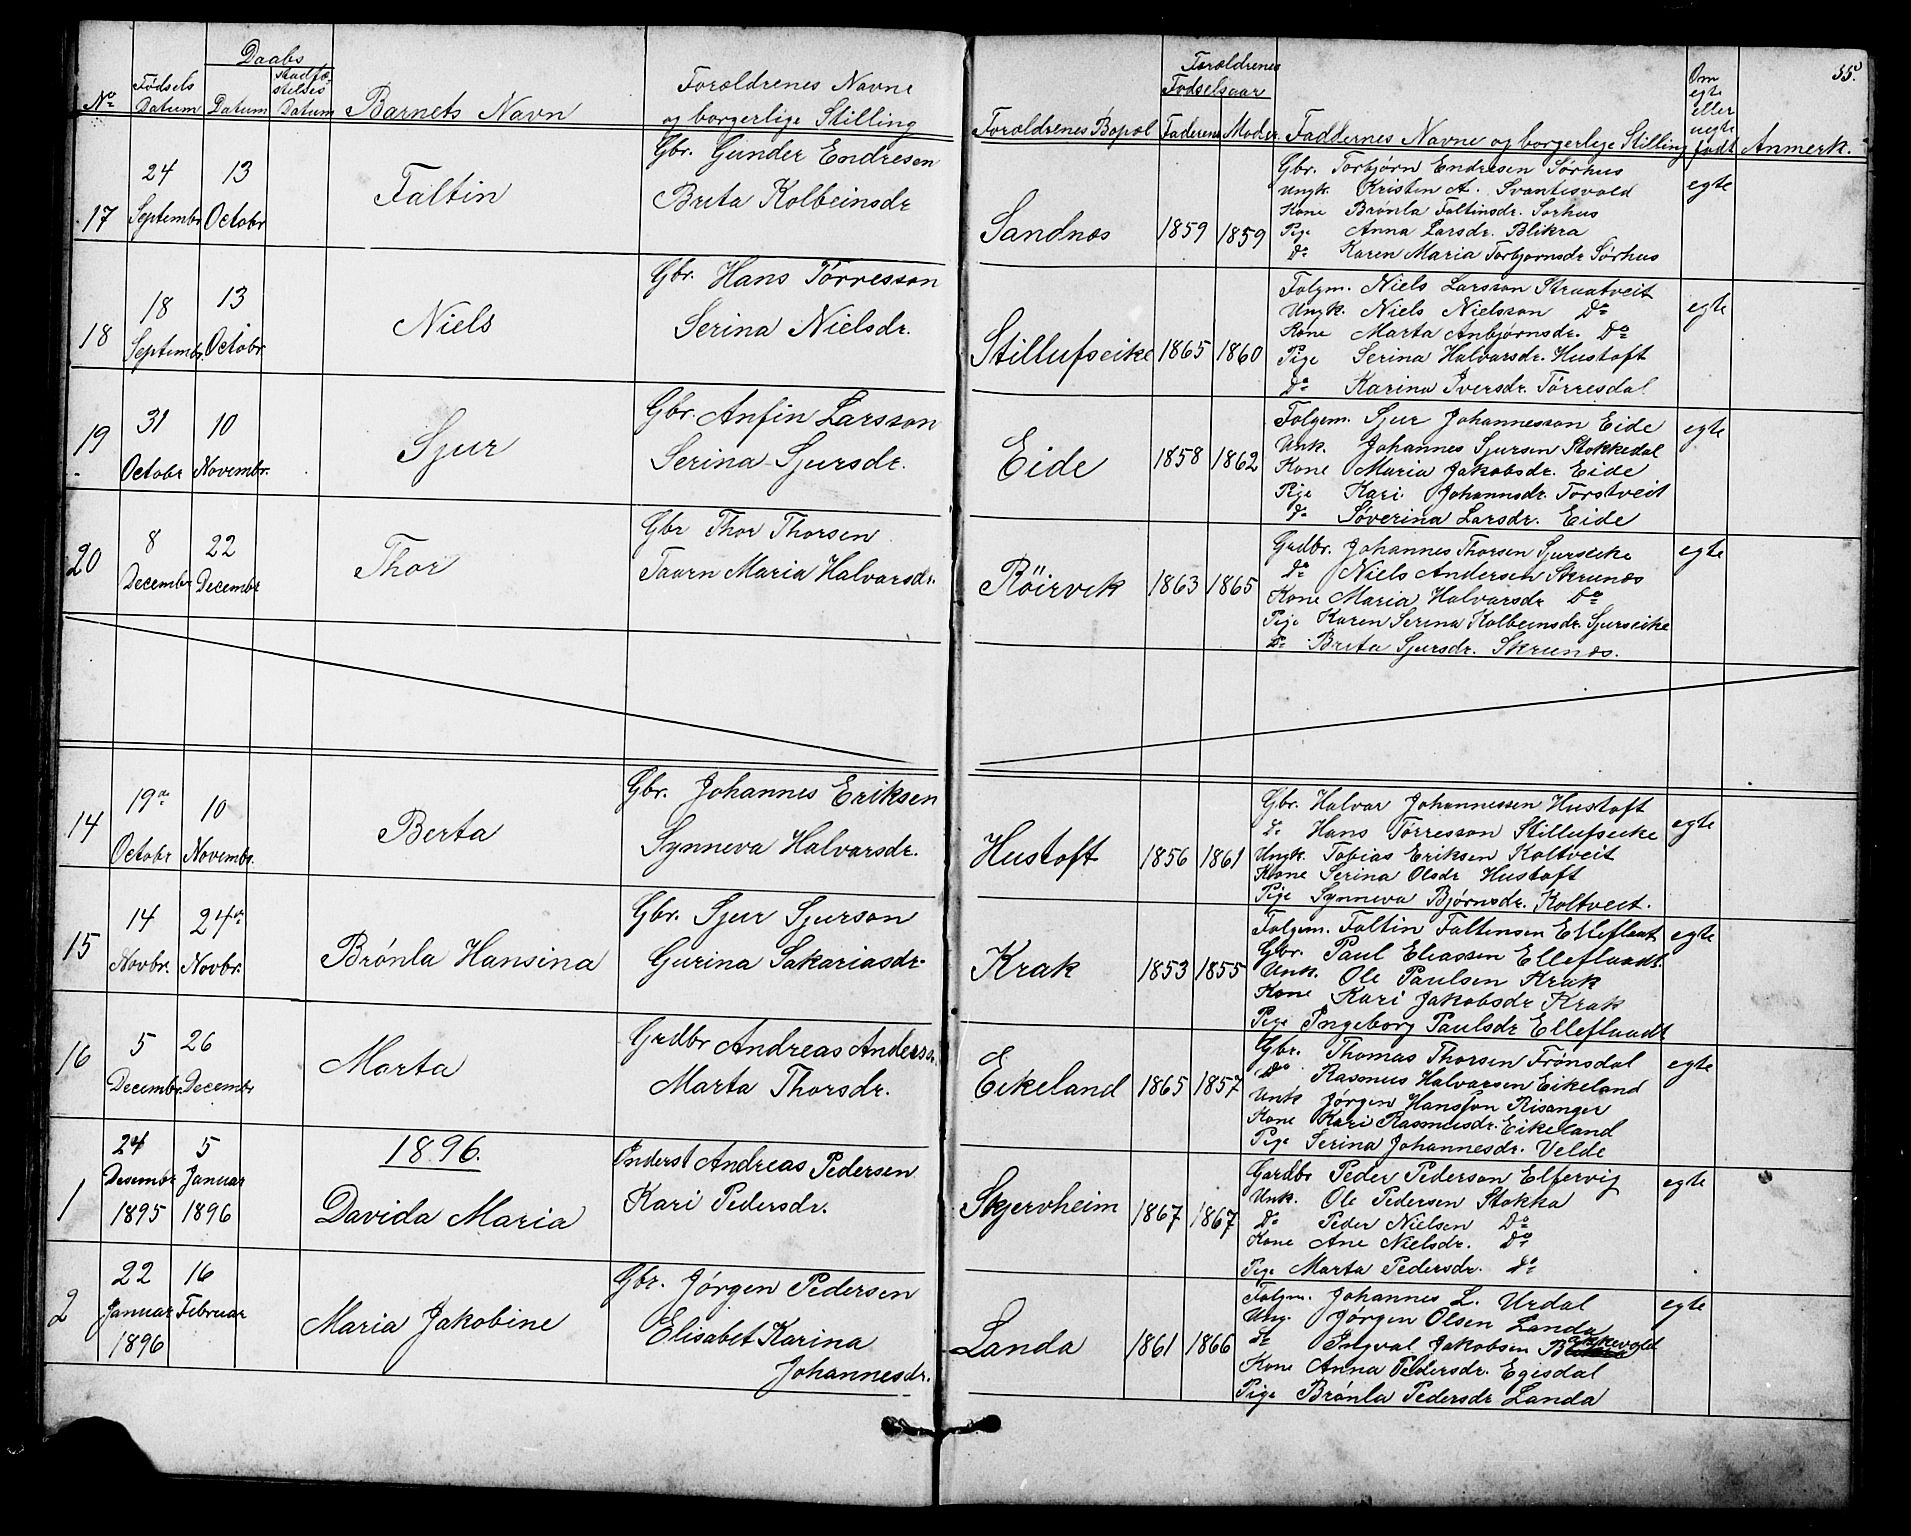 35.
Daabs
Forældrenes
Fødsels
stadfæ-
stelses
Forældrenes Navne
Fødselsaar
Om
egte
eller
uegte
født
No Datum Datum Datum Barnets Navn og borgerlige Stilling
Forældrenes Bopæl Faderens Moder Faddernes Navne og borgerlige Stilling Anmerk.
17
24 Septembr
13 Octobr
Faltin
Gbr. Gunder Endresen
Brita Kolbeinsdr
Sandnæs 1859 1859
Gbr. Torbjørn Endresen Sørhus
Ungk. Kristen A. Svantesvold
Kone Brønla Faltinsdr. Sørhus
Pige Anna Larsdr. Blikra
Do Karen Maria Torbjørnsdr Sørhus
egte
18
18 Septembr.
13 Octobr
Niels
Gbr. Hans Tørresson
Serina Nielsdr.
Stillufseike 1865 1860
Folgm. Niels Larsson Straatveit
Ungk. Niels Nielsson Do
Kone Marta Anbjørnsdr. Do
Pige Serina Halvarsdr. Hustoft
Do Karina Iversdr. Tørresdal
egte
19
31 Octobr
10 Novembr.
Sjur
Gbr. Anfin Larsson
Serina Sjursdr.
Eide 1858 1862
Folgem. Sjur Johannesson Eide
Unk. Johannes Sjursen Stokkedal
Kone Maria Jakobsdr. Eide
Pige Kari Johannsdr. Torstveit
Do Søverina Larsdr. Eide
egte
20
8 Decembr
22 Decembr
Thor
Gbr Thor Thorsen
Taarn Maria Halvarsdr.
Röirvik 1863 1865
Grdbr. Johannes Thorsen Sjurseike
Do Niels Andersen Skrunæs
Kone Maria Halvarsdr Do
Pige Karen Serina Kolbeinsdr. Sjurseike
Do Brita Sjursdr. Skrunæs.
egte
14
19de Octobr
10 Novembr.
Berta
Gbr. Johannes Eriksen
Synneva Halvarsdr.
Hustoft 1856 1861
Gbr. Halvar Johannessen Hustoft
Do Hans Tørresson Stillufseike
Ungk. Tobias Eriksen Koltveit
Kone Serina Olsdr Hustoft
Pige Synneva Bjørnsdr. Koltveit.
egte
15
14 Novbr.
24de Novbr.
Brønla Hansina
Gbr. Sjur Sjurson
Gurina Sakariasdr
Krak 1853 1855
Folgm. Faltin Faltensen Elleflaat
Gbr. Paul Eliassen Elleflaadt.
Unk. Ole Paulsen Krak
Kone Kari Jakobsdr Krak
Pige Ingeborg Paulsdr Elleflaadt
egte
16
5 Decembr.
26 Decembr
Marta
Grdbr Andreas Anderss.
Marta Thorsdr.
Eikeland 1865 1857
Gbr. Thomas Thorsen Frønsdal
Do Rasmus Halvarsen Eikeland
Unk Jørgen Hansson Risanger
Kone Kari Rasmusdr. Eikeland
Pige Serina Johannesdr. Velde
egte
1896.
1
24 Desembr 1895
5 Januar 1896
Davida Maria
Inderst Andreas Pedersen
Kari Pedersdr.
Skjervheim 1867 1867
Gardbr Peder Pederson Elfervig
Unk. Ole Pedersen Stokka
Do Peder Nielsen Do
Kone Ane Nielsdr. Do
Pige Marta Pedersdr. Do
egte
2
22 Januar 1896
16 Februar
Maria Jakobine
Gbr. Jørgen Pedersen
Elisabet Karina
Johannesdr.
Landa 1861 1866
Folgm. Johannes L. Urdal
Ung. Jørgen Olsen Landa
Do Ingval Jakobsen
Kone Anna Pedersdr. Egisdal
Pige Brønla Pedersdr Landa
egte